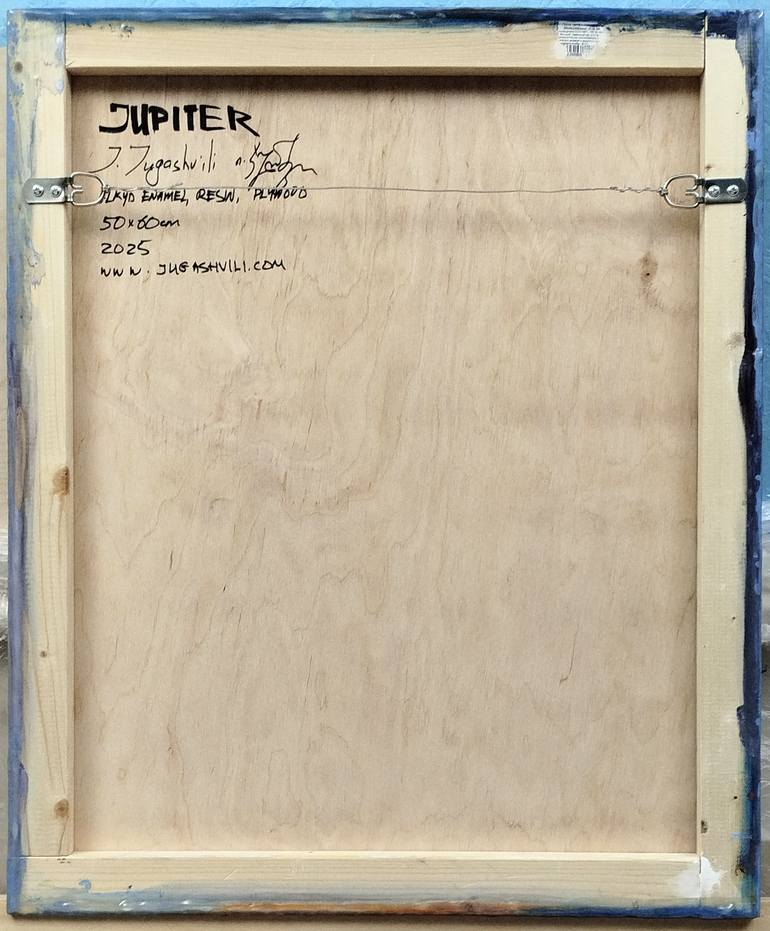 JUPITER
J. Jugashvili
ALKYD ENAMEL, RESIN, PLYWOOD
50x60cm
2025
WWW.JUGASHVILI.COM